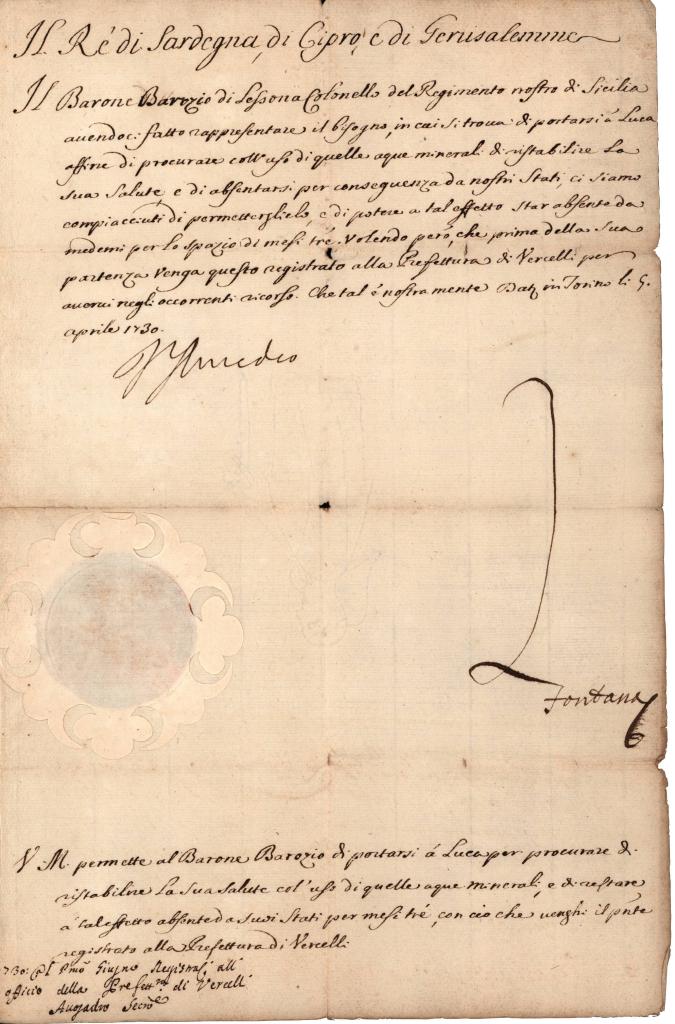 Il Ré di Sardegna, di Cipro, e di Gerusalemme
Il Barone Barozio di Lessona Colonello del Regimento nostro di Sicilia
avendoci fatto rappresentare il bisogno, in cui si trova di portarsi à Luca
affine di procurare coll'uso di quelle aque minerali di ristabilire la
sua salute, e di absentarsi per conseguenza da nostri Stati, ci siamo
compiacciuti di permetterglielo, e di potere a tal effetto star absente da
medemi per lo spazio di mesi tré. Volendo però, che prima della sua
partenza venga questo registrato alla Prefettura di Vercelli per
avervi negli occorrenti ricorso. Che tal é nostra mente Datt. in Torino li 5.
aprile 1730.
V Amedeo
Fontana
V. M. permette al Barone Barozio di portarsi á Luca per procurare di
ristabilire la sua salute col'uso di quelle aque minerali, e di restare
á tal effetto absente da suoi Stati per mesi tré, con ciò che venghi il pnte
registrato alla Prefettura di Vercelli
1730: Pmo Giugno Registrat. all'
officio della Prefettra di Vercelli
Avogadro Secro